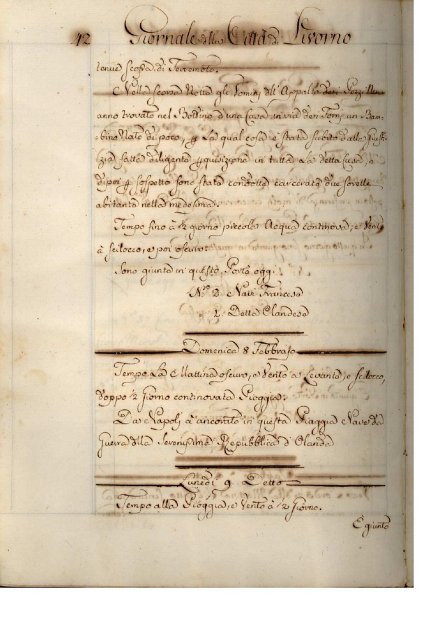 42 Giornale della Città di Livorno
tenue scossa di Terremoto.
Nella scorsa Notte gli Uomini dell'Appalto dei Pozzi
anno trovato nel Bottino d'una Casa in via dei un Bam-
bino Nato di poco, La qual cosa è stata
fatto diligente perquisizione in tutta La detta Casa, e
dipoi per sospetto sono state condotte carcerate due sorelle
abitanti nella medesima.
Tempo fino a ½ giorno piccola Acqua continova, e Vento
à scilocco, e poi oscuro.
Sono giunte in questo Porto oggi
N.º 2 Navi Francesi
1 Detta Olandese
Domenica 8 Febbraio
Tempo La Mattina oscuro, e Vento a Levante, e scilocco,
doppo ½ giorno continovata Pioggia.
Da Napoli à ancorato in questa Piaggia Nave di
Guerra della Serenissima Repubblica d'Olanda
Lunedì 9 Detto
Tempo alla Pioggia, e Vento à ½ giorno.
È giunto